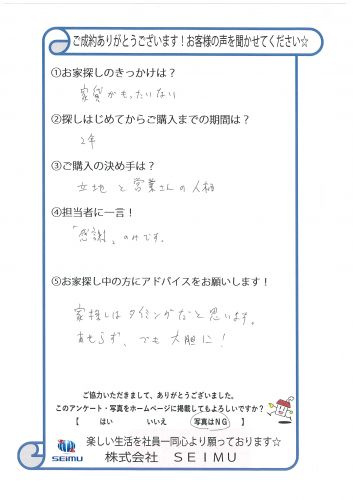 ご成約ありがとうございます！お客様の声を聞かせてください☆
①お家探しのきっかけは？
家賃がもったいない
②探しはじめてからご購入までの期間は？
2年
③ご購入の決め手は？
立地と営業さんの人柄
④担当者に一言！
「感謝」のみです。
⑤お家探し中の方にアドバイスをお願いします！
家探しはタイミングだと思います。
あせらず、でも大胆に！
ご協力いただきまして、ありがとうございました。
このアンケート・写真をホームページに掲載してもよろしいですか？
【　はい　いいえ　写真はNG　】
楽しい生活を社員一同心より願っております☆
SEIMU
株式会社　ＳＥＩＭＵ